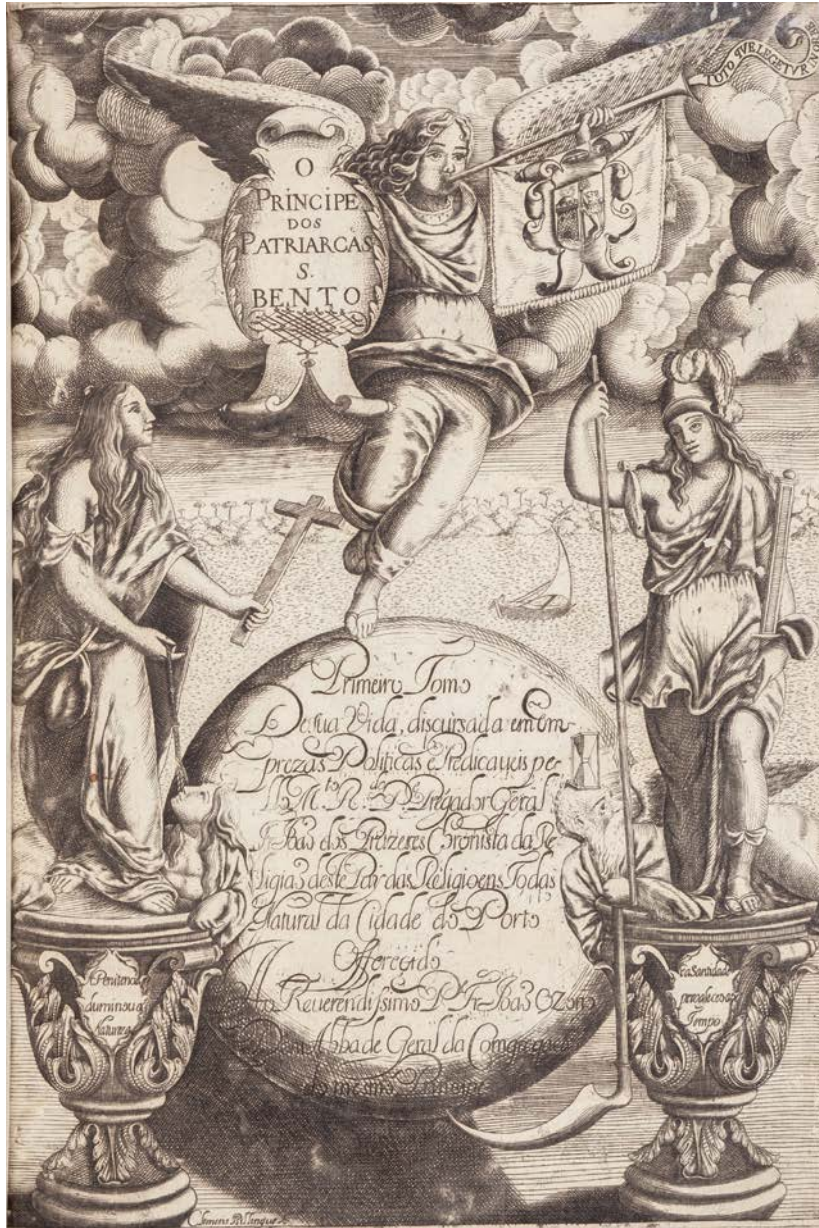 TOTO QVE LEGETVR IN ORBE
O
PRINCIPE
DOS
PATRIARCAS
S.
BENTO
Primeiro Tomo
De sua Vida, discursada em Em-
prezas Politicas e Predicaveis pe-
llo M.to R.do P.e Pregador Geral
Fr. Ioaõ dos Prazeres Coronista da Re-
ligiaõ deste Par das Religioens Todas
Natural da Cidade do Porto
Offerecido
Ao Reuerendissimo P. Fr. Ioaõ Ozorio
Abbade Geral da Comgregaçaõ
do mesmo Principe
A Penitencia
duminou a
Natureza
e a Santidade
preualeceo ao
Tempo
Clemens